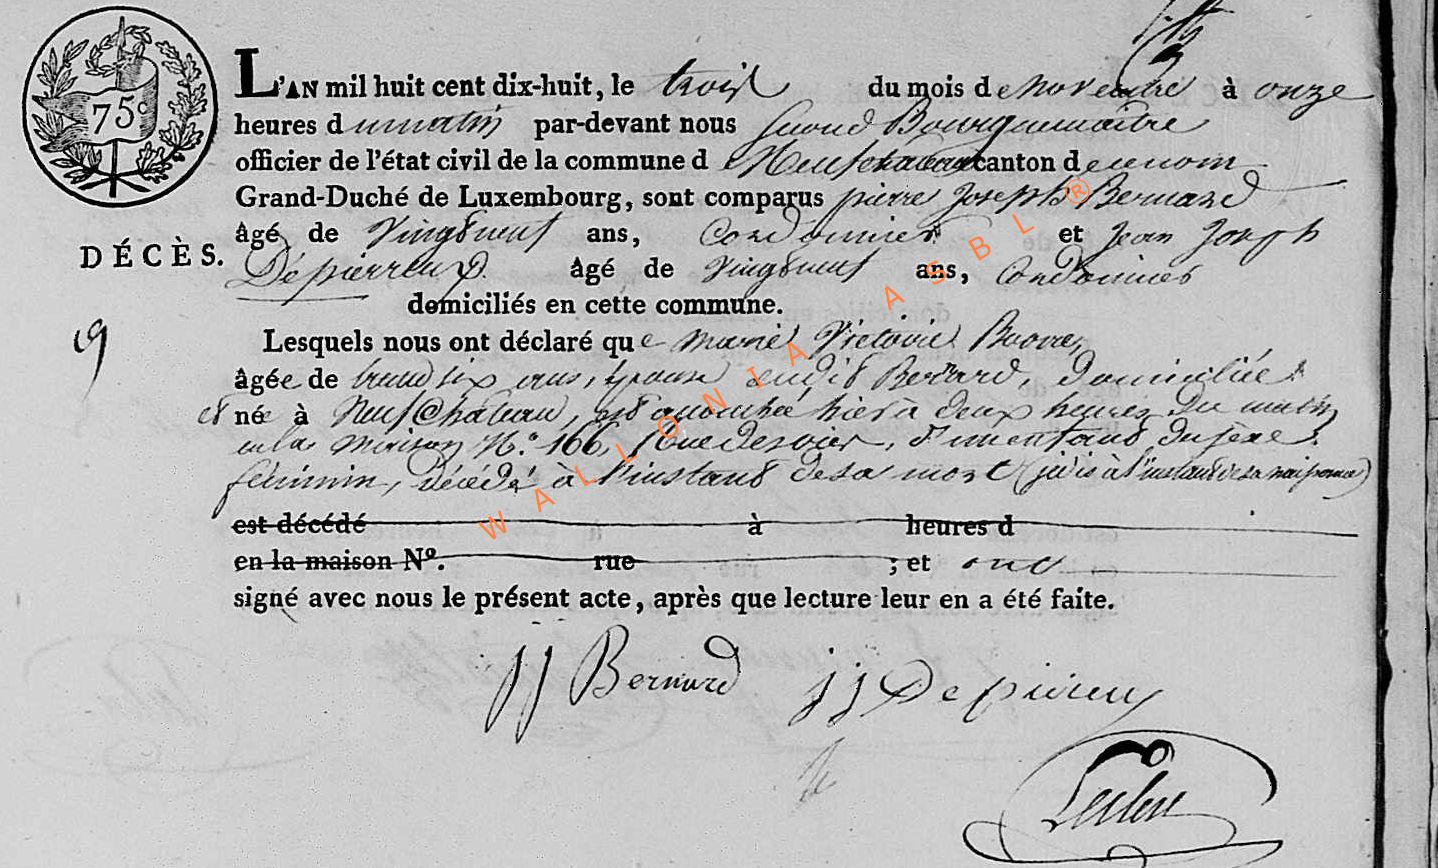 75c
L'AN mil huit cent dix-huit, le trois du mois de Novembre à onze
heures du matin par-devant nous Second Bourguemaître
officier de l'état civil de la commune de Neufchateau canton de ce nom
Grand-Duché de Luxembourg, sont comparus pierre Joseph Bernard
âgé de Vingt neuf ans, Cordonnier et Jean Joseph
DÉCÈS.
Depierreux âgé de Vingt neuf ans, Cordonnier
domiciliés en cette commune.
9
Lesquels nous ont déclaré que Marie Victoire
âgée de trente six ans, épouse dudit Bernard, Domiciliée
et née à Neufchâteau, est accouchée hier à deux heures Du matin
en la Maison N.o 166, Rue d'un enfant du sexe
féminin, Décédé à l'instant de sa mort (je dis à l'instant de sa naissance)
est décédé à heures d
en la maison No. rue ; et ont
signé avec nous le présent acte, après que lecture leur en a été faite.
JJ Bernard JJ Depiereux
WALLONIA ASBL ®